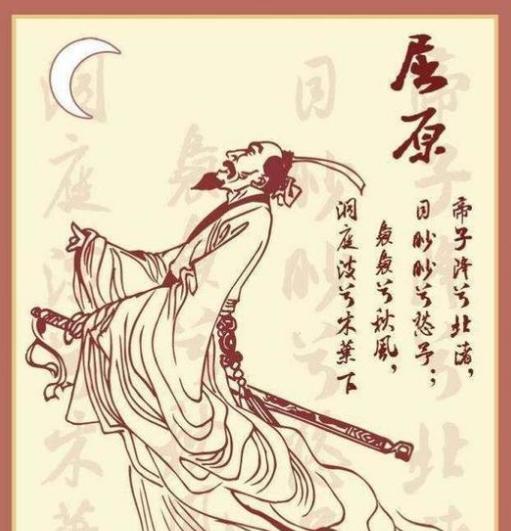 屈原
帝子降兮北渚，
目眇眇兮愁予；
袅袅兮秋風，
洞庭波兮木葉下